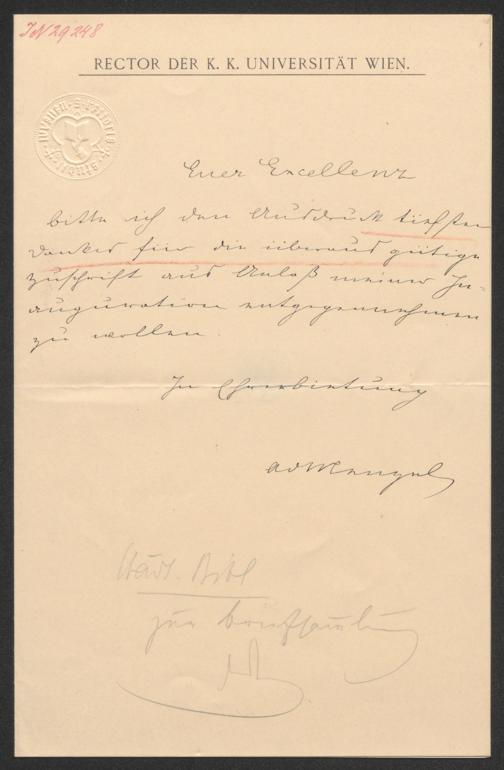 IN 29248
RECTOR DER K. K. UNIVERSITÄT WIEN.
Euer Excellenz
bitte ich den Ausdruck tiefsten
Dankes für die überaus gütige
Zuschrift aus Anlaß meiner In-
auguration entgegennehmen
zu wollen.
In Ehrerbietung
Städt. Bibl
zur Briefsammlung